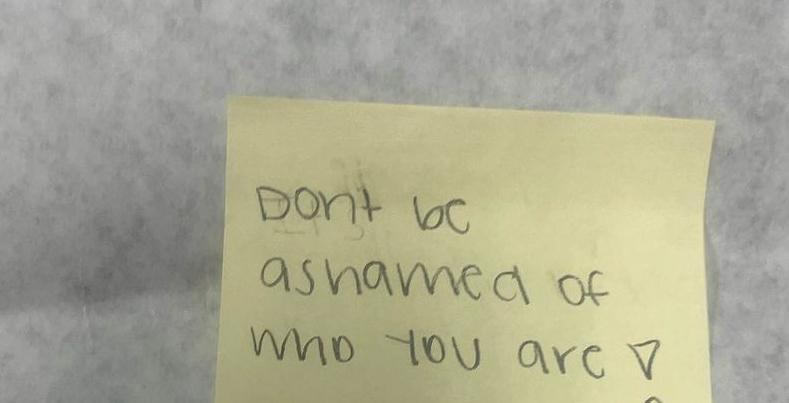 Dont be
ashamed of
who you are ♡